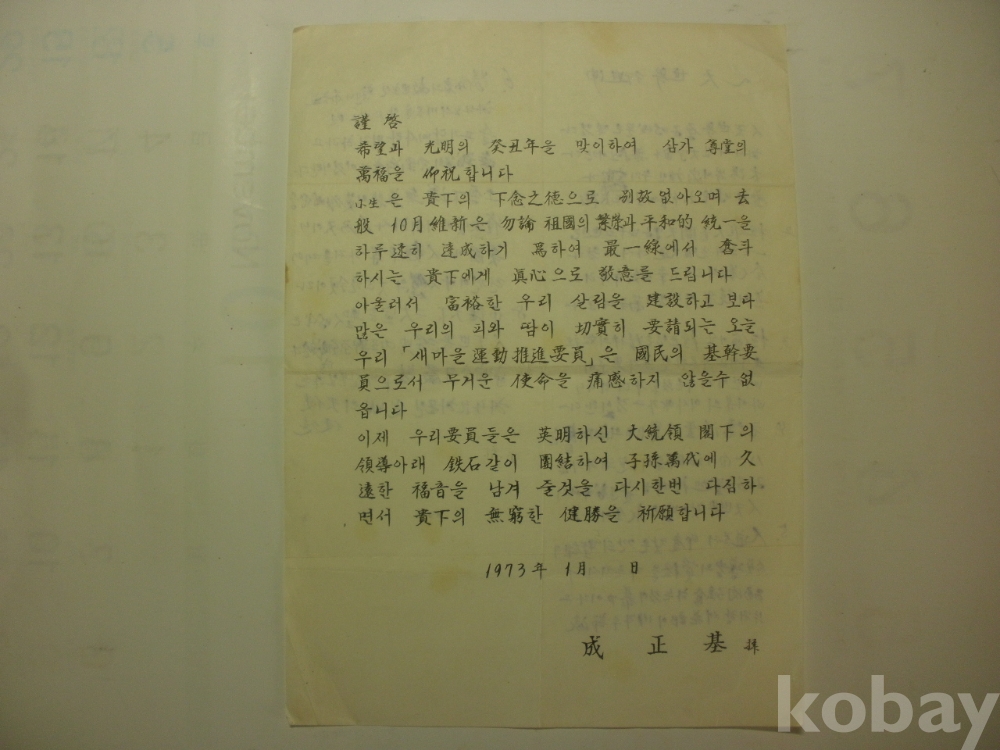 謹啓
希望과 光明의 癸丑年을 맞이하여 삼가 尊堂의
萬福을 仰祝합니다
小生은 貴下의 下念之德으로 별故없아오며 去
般 10月維新은 勿論 祖國의 繁榮과 平和的 統一을
하루速히 達成하기 爲하여 最一線에서 奮斗
하시는 貴下에게 眞心으로 敬意를 드립니다
아울러서 富裕한 우리 살림을 建設하고 보다
많은 우리의 피와 땀이 切實히 要請되는 오늘
우리 「새마을運動推進要員」은 國民의 基幹要
員으로서 무거운 使命을 痛感하지 않을수 없
읍니다
이제 우리要員들은 英明하신 大統領 閣下의
領導아래 鉄石같이 團結하여 子孫萬代에 久
遠한 福音을 남겨 줄것을 다시한번 다짐하
면서 貴下의 無窮한 健勝을 祈願합니다
1973年 1月 日
成正基 拜
kobay